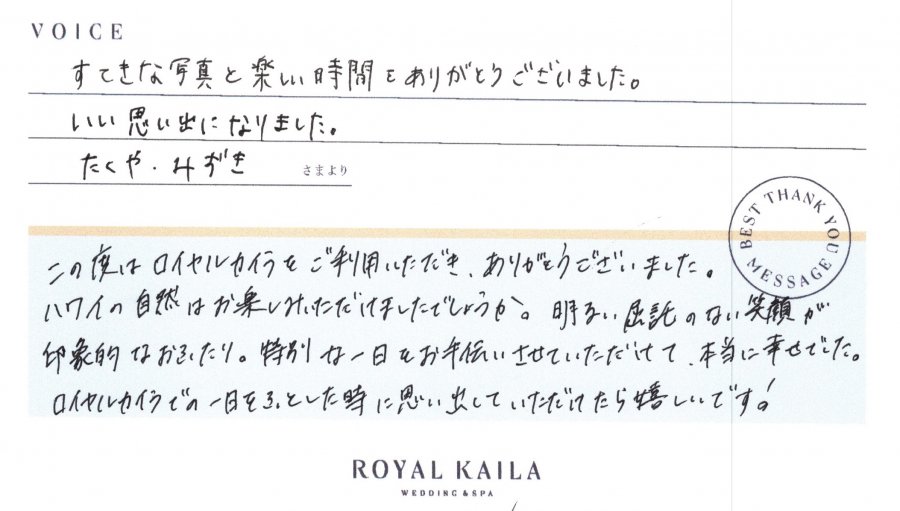 VOICE
すてきな写真と楽しい時間をありがとうございました。
いい思い出になりました。
たくや・みずき さまより
BEST THANK YOU MESSAGE
この度はロイヤルカイラをご利用いただき、ありがとうございました。
ハワイの自然はお楽しみいただけましたでしょうか。明るい屈託のない笑顔が
印象的なおふたり。特別な一日をお手伝いさせていただけて、本当に幸せでした。
ロイヤルカイラでの一日をふとした時に思い出していただけたら嬉しいです!
ROYAL KAILA
WEDDING & SPA